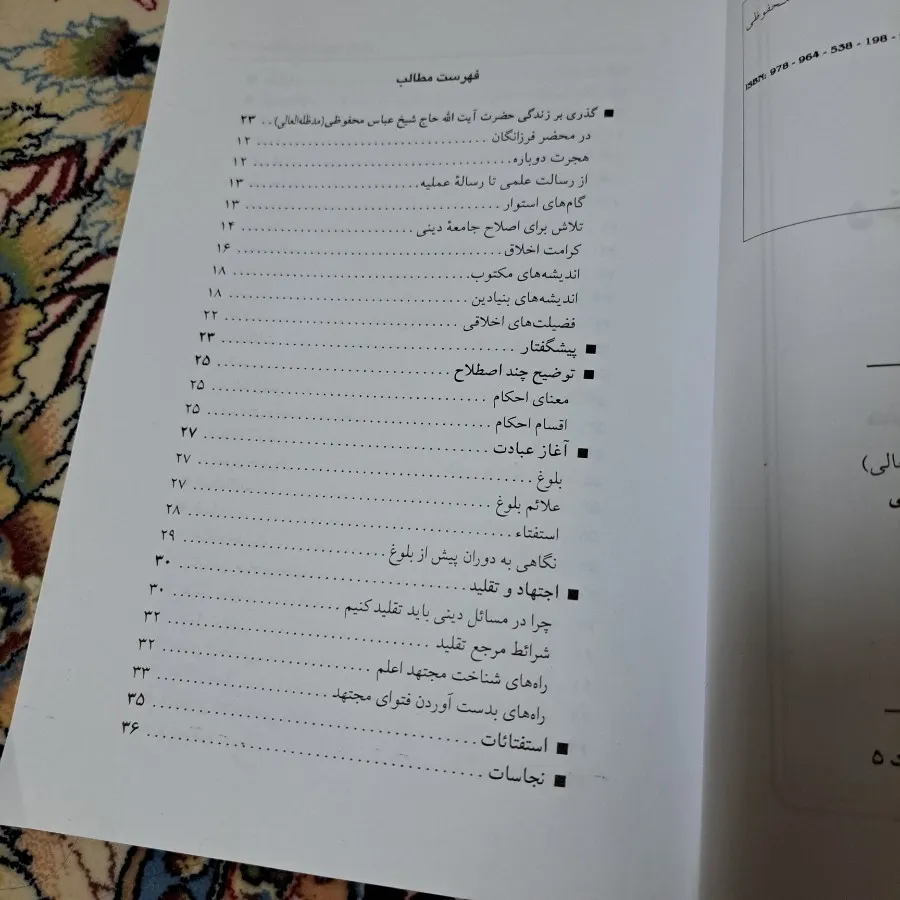 فهرست مطالب
■ گذری بر زندگی حضرت آیت الله حاج شیخ عباس محفوظی(مدظله‌العالی) .. ۲۳
در محضر فرزانگان ........................ ۱۲
هجرت دوباره ........................ ۱۲
از رسالت علمی تا رسالهٔ عملیه ........................ ۱۳
گام‌های استوار ........................ ۱۳
تلاش برای اصلاح جامعهٔ دینی ........................ ۱۴
کرامت اخلاق ........................ ۱۶
اندیشه‌های مکتوب ........................ ۱۸
اندیشه‌های بنیادین ........................ ۱۸
فضیلت‌های اخلاقی ........................ ۲۲
■ پیشگفتار ........................ ۲۳
■ توضیح چند اصطلاح ........................ ۲۵
معنای احکام ........................ ۲۵
اقسام احکام ........................ ۲۵
■ آغاز عبادت ........................ ۲۷
بلوغ ........................ ۲۷
علائم بلوغ ........................ ۲۷
استفتاء ........................ ۲۸
نگاهی به دوران پیش از بلوغ ........................ ۲۹
■ اجتهاد و تقلید ........................ ۳۰
چرا در مسائل دینی باید تقلید کنیم ........................ ۳۰
شرائط مرجع تقلید ........................ ۳۲
راه‌های شناخت مجتهد اعلم ........................ ۳۲
راه‌های بدست آوردن فتوای مجتهد ........................ ۳۳
■ استفتائات ........................ ۳۵
■ نجاسات ........................ ۳۶
محفوظی
ISBN: 978 - 964 - 538 - 198 -
عالی)